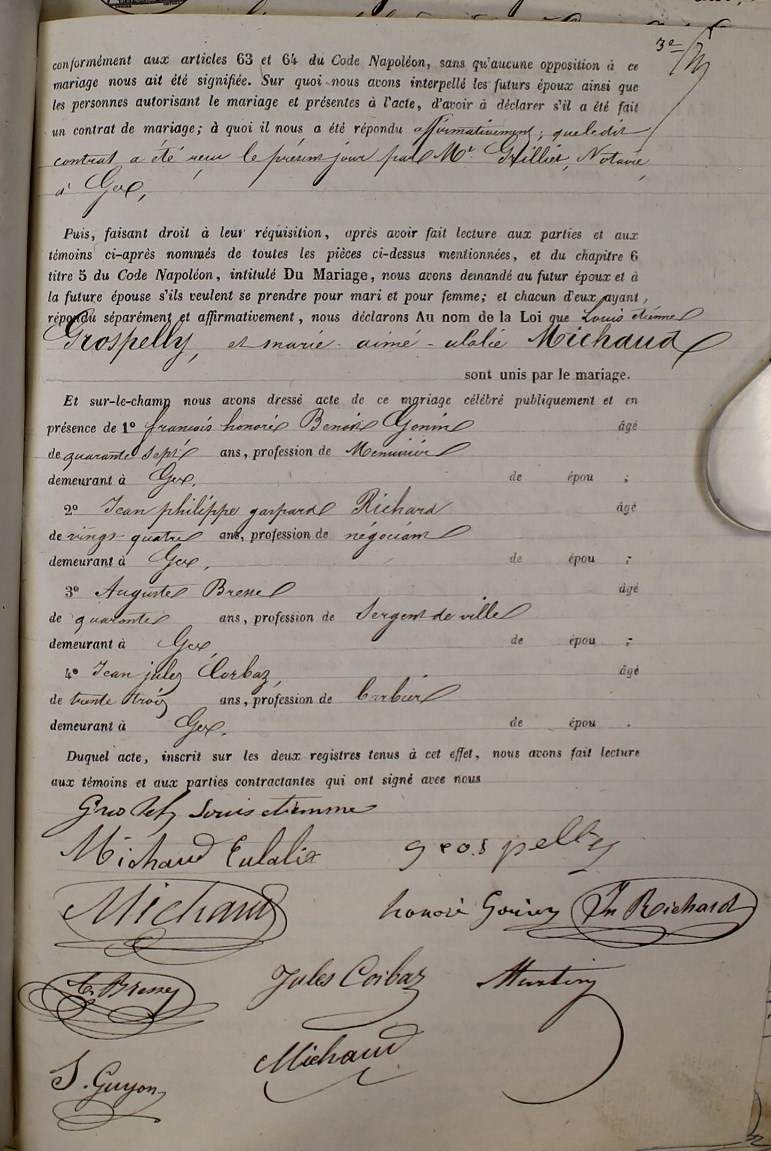 3e
conformément aux articles 63 et 64 du Code Napoléon, sans qu'aucune opposition à ce
mariage nous ait été signifiée. Sur quoi nous avons interpellé les futurs époux ainsi que
les personnes autorisant le mariage et présentes à l'acte, d'avoir à déclarer s'il a été fait
un contrat de mariage; à quoi il nous a été répondu affirmativement; que ledit
contrat a été reçu le présent jour par Me Grillier, Notaire,
à Gex,
Puis, faisant droit à leur réquisition, après avoir fait lecture aux parties et aux
témoins ci-après nommés de toutes les pièces ci-dessus mentionnées, et du chapitre 6
titre 5 du Code Napoléon, intitulé Du Mariage, nous avons demandé au futur époux et à
la future épouse s'ils veulent se prendre pour mari et pour femme; et chacun d'eux ayant,
répondu séparément et affirmativement, nous déclarons Au nom de la Loi que Louis étienne
Grospelly, et marie-aimé-ulalie Michaud
sont unis par le mariage.
Et sur-le-champ nous avons dressé acte de ce mariage célébré publiquement et en
présence de 1º françois honoré Benoit Gonin âgé
de quarante sept ans, profession de Menuisier
demeurant à Gex, de épou ;
2º Jean philippe gaspard Richard âgé
de vingt-quatre ans, profession de négociant
demeurant à Gex, de épou ;
3º Auguste Bresse âgé
de quarante ans, profession de Sergent de ville
demeurant à Gex de épou ;
4º Jean jules Corbaz, âgé
de trente trois ans, profession de barbier
demeurant à Gex. de épou .
Duquel acte, inscrit sur les deux registres tenus à cet effet, nous avons fait lecture
aux témoins et aux parties contractantes qui ont signé avec nous
Louis etienne
Michaud Eulalie grospelly
Michaud honoré Gonin Jn Richard
Bresse Jules Corbaz Martin
Michaud
J. Guyon